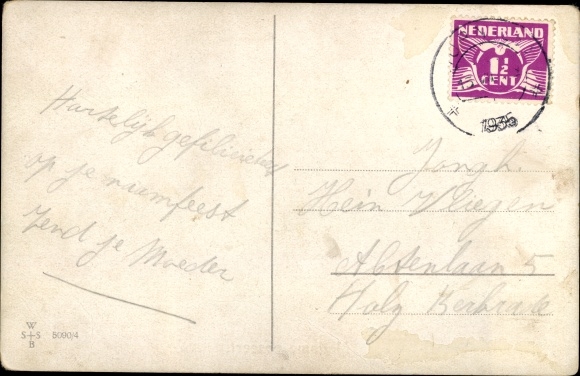 NEDERLAND
1½
CENT
1935
Hartelijk gefiliciteerd
op je naamfeest
Zend je Moeder
Jongh.
Hein Vliegen
Abtenlaan 5
Holz Kerkrade
W
S+S
B
5090/4